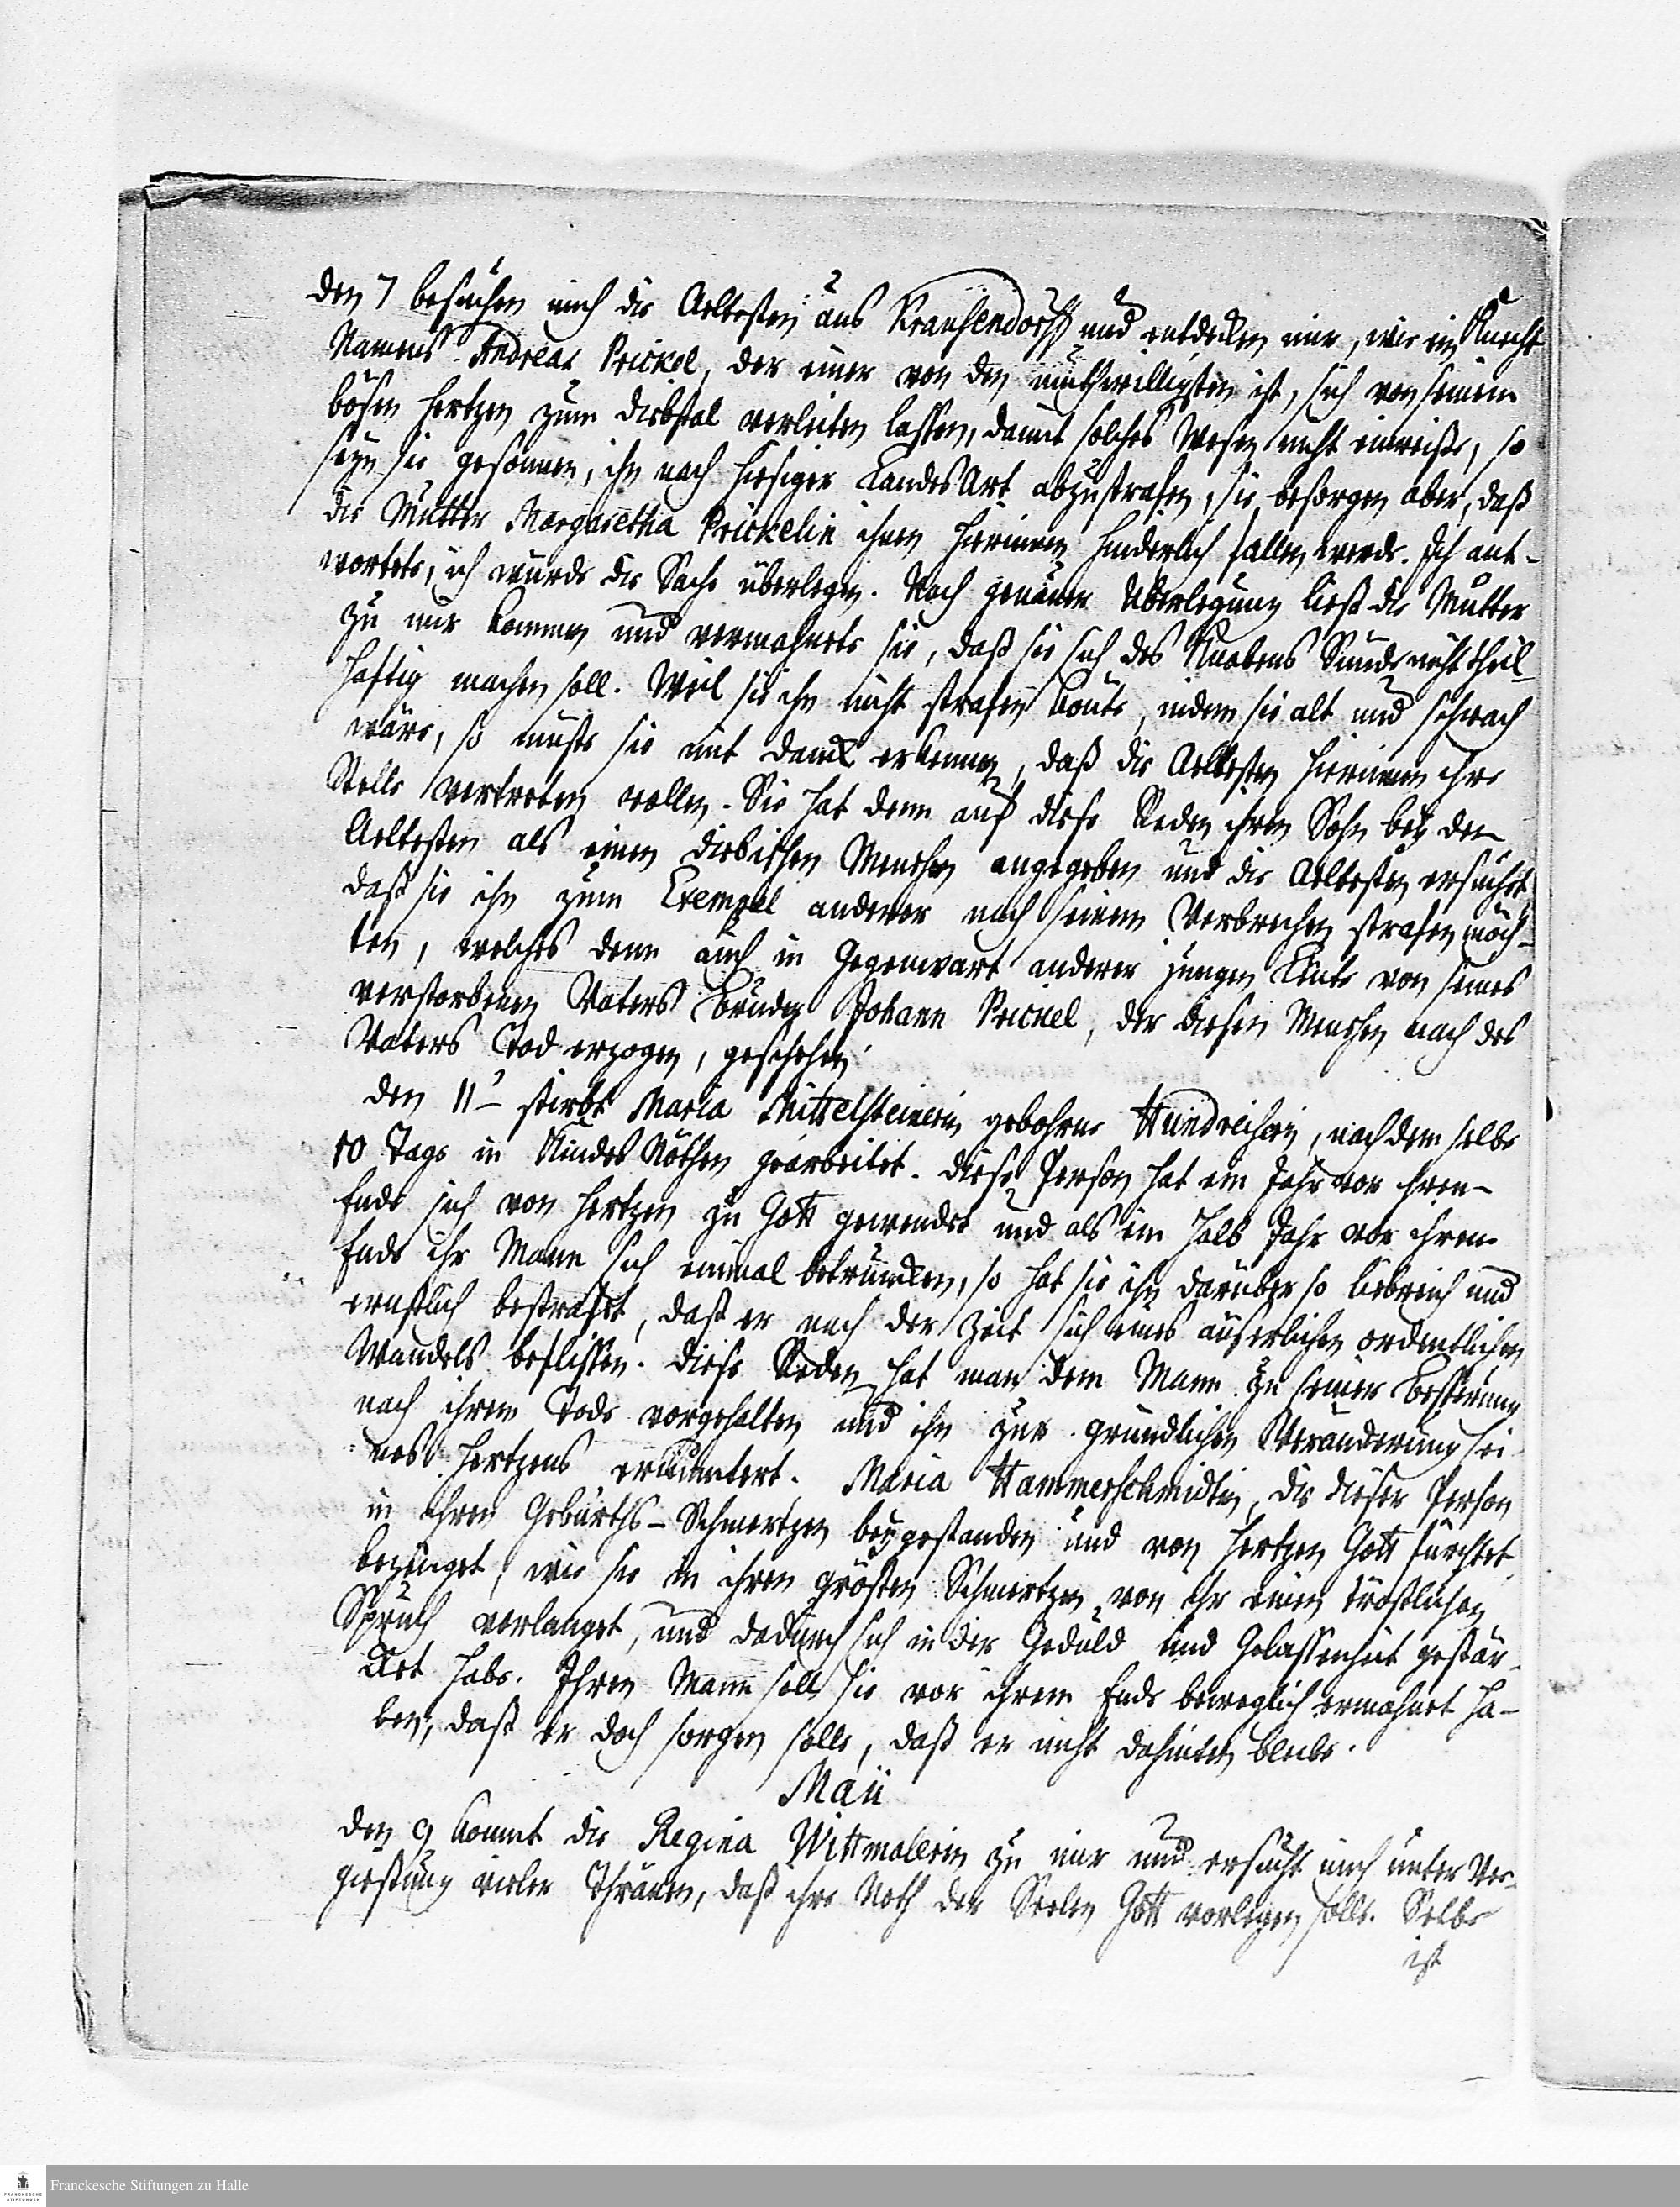 den 7 besuchen mich die Aeltesten aus Krausendorff und entdecken mir, wie ein Knecht
Namens Andreas Prickel, der einer von den muthwilligsten ist, sich von seinem
bösen Hertzen zum diebstal verleiten lassen, damit solches Wesen nicht einreiße, so
seyn sie gesonnen, ihn nach hiesiger Landes Art abzustrafen, sie besorgen aber, daß
die Mutter Margaretha Prickelin ihnen hierinnen hinderlich fallen werde. Ich ant-
wortete, ich würde die Sache überlegen. Nach genauer Uberlegung ließ die Mutter
zu mir kommen und vermahnete sie, daß sie sich des Knabens Sünde nicht theil-
haftig machen soll. Weil sie ihn nicht strafen könte, indem sie alt und schwach
wäre, so müste sie mit danck erkennen, daß die Aeltesten hierinnen ihre
Stelle vertreten wollen. Sie hat denn auf diese Reden ihren Sohn bey den
Aeltesten als einen diebischen Menschen angegeben und die Aeltesten ersuchet,
daß sie ihn zum Exempel anderer nach seinem Verbrechen strafen möch-
ten, welches denn auch in Gegenwart anderer jungen Leute von seines
verstorbenen Vaters Bruder Johann Prickel, der diesen Menschen nach des
Vaters Tod erzogen, geschehen.
den 11 stirbt Maria Mittelsteinerin gebohrne Hundreiserin, nach dem selbe
10 Tage in Kindes Nöthen gearbeitet. Diese Person hat ein Jahr vor ihren
Ende sich von Hertzen zu Gott gewendet und als ein halb Jahr vor ihrem
Ende ihr Mann sich einmal betruncken, so hat sie ihn darüber so liebreich und
ernstlich bestrafet, daß er nach der Zeit sich eines äuserlichen ordentlichen
Wandels beflissen. Diese Reden hat man dem Mann zu seiner Besserung
nach ihrem Tode vorgehalten und ihn zur gründlichen Veränderung sei
nes Hertzens ermuntert. Maria Hammerschmidtin, die dieser Person
in ihren Geburths-Schmertzen beygestanden und von Hertzen Gott fürchtet,
bezeuget, wie sie in ihren grösten Schmertzen von ihr einen tröstlichen
Spruch verlanget, und dadurch sich in der Gedult und Gelassenheit gestär-
cket habe. Ihren Mann soll sie vor ihrem Ende beweglich ermahnet ha-
ben, daß er doch sorgen solle, daß er nicht dahinten bleibe.
Maii
den 9 kommt die Regina Wittmallerin zu mir und ersucht mich unter Ver-
gießung vieler Thränen, daß ihre Noth der Seelen Gott vorlegen solle. Selbe
ist
Franckesche Stiftungen zu Halle
FRANCKESCHE
STIFTUNGEN